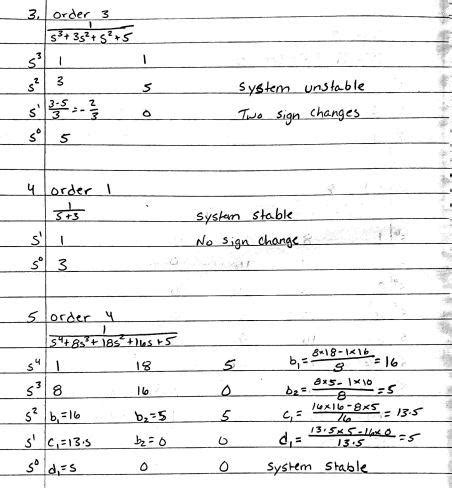 3. order 3
1
s³+3s²+s²+5
s³ 1 1
s² 3 5 System unstable
s¹ 3-5/3 = -2/3 0 Two sign changes
s⁰ 5
4 order 1
1
s+3
System stable
s¹ 1 No sign change
s⁰ 3
5 order 4
1
s⁴+8s³+18s²+16s+5
s⁴ 1 18 5 b₁= 8×18-1×16/8 = 16
s³ 8 16 0 b₂= 8×5-1×10/8 = 5
s² b₁=16 b₂=5 5 c₁= 16×16-8×5/16 = 13.5
s¹ c₁=13.5 b₂=0 0 d₁= 13.5×5-16×0/13.5 = 5
s⁰ d₁=5 0 0 System stable